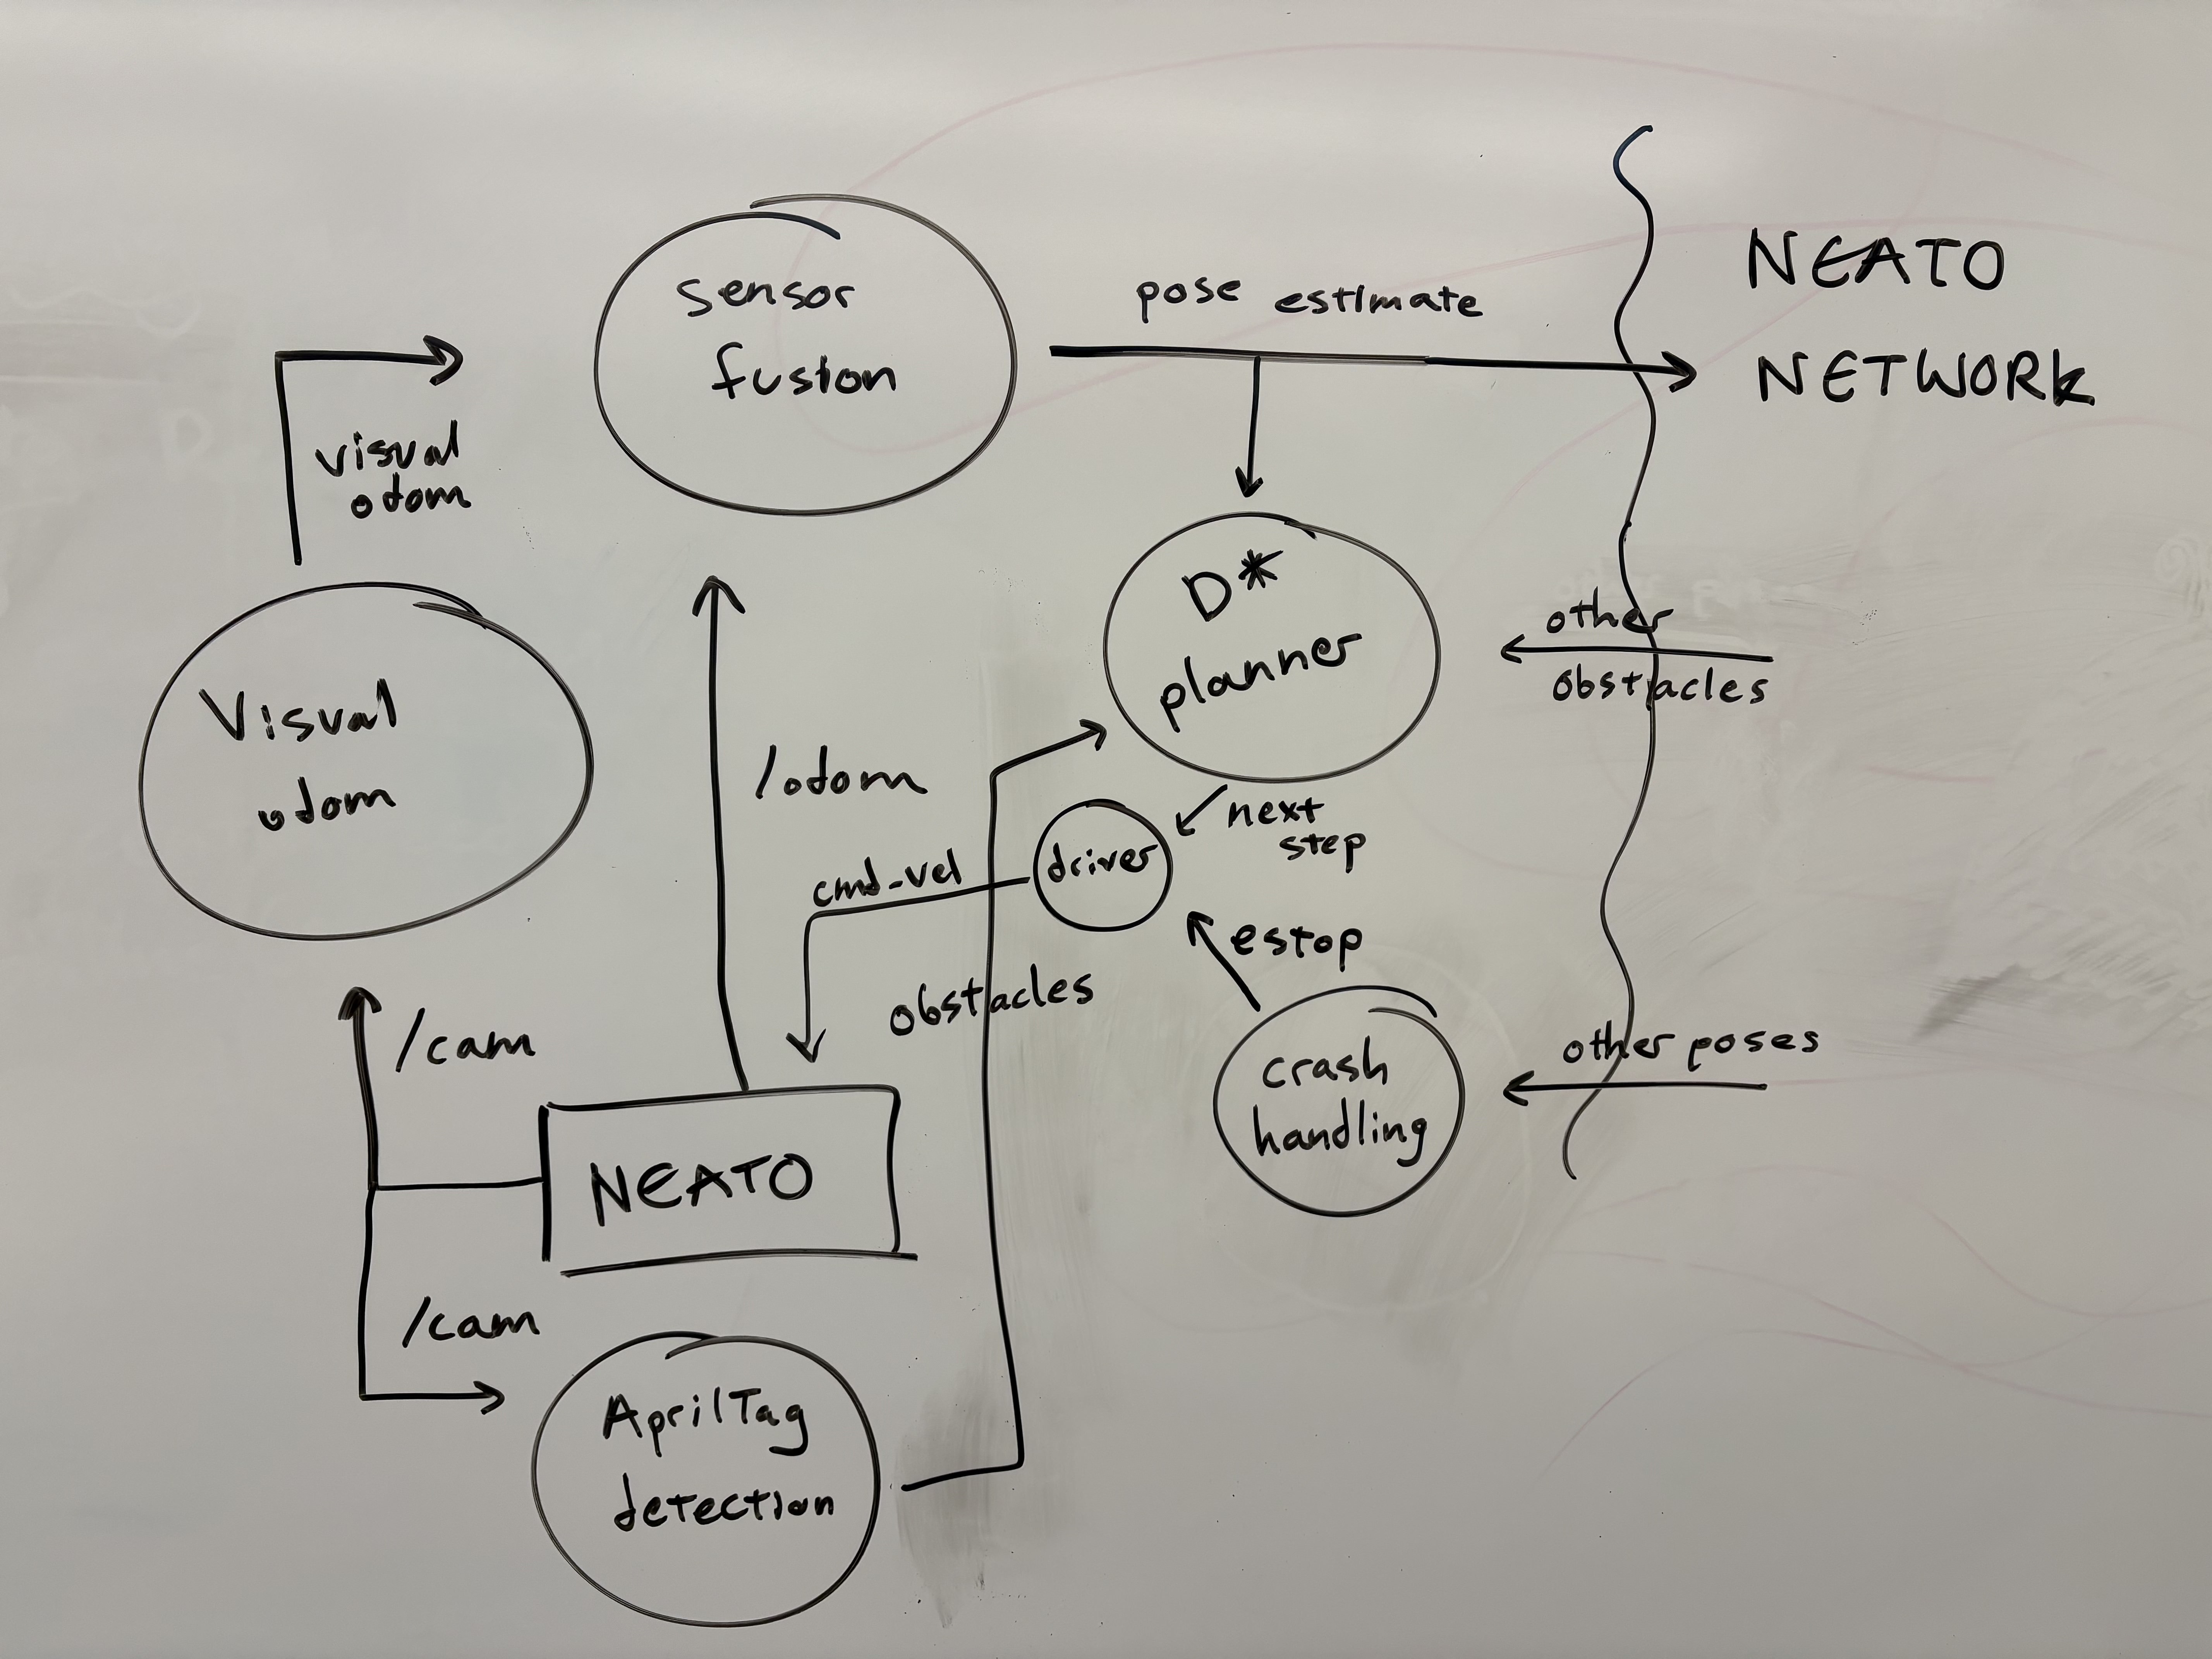 sensor
fusion
pose estimate
NEATO
NETWORK
visual
odom
D*
planner
other
obstacles
Visual
odom
/odom
next
step
driver
cmd_vel
estop
obstacles
/cam
crash
handling
other poses
NEATO
/cam
AprilTag
detection